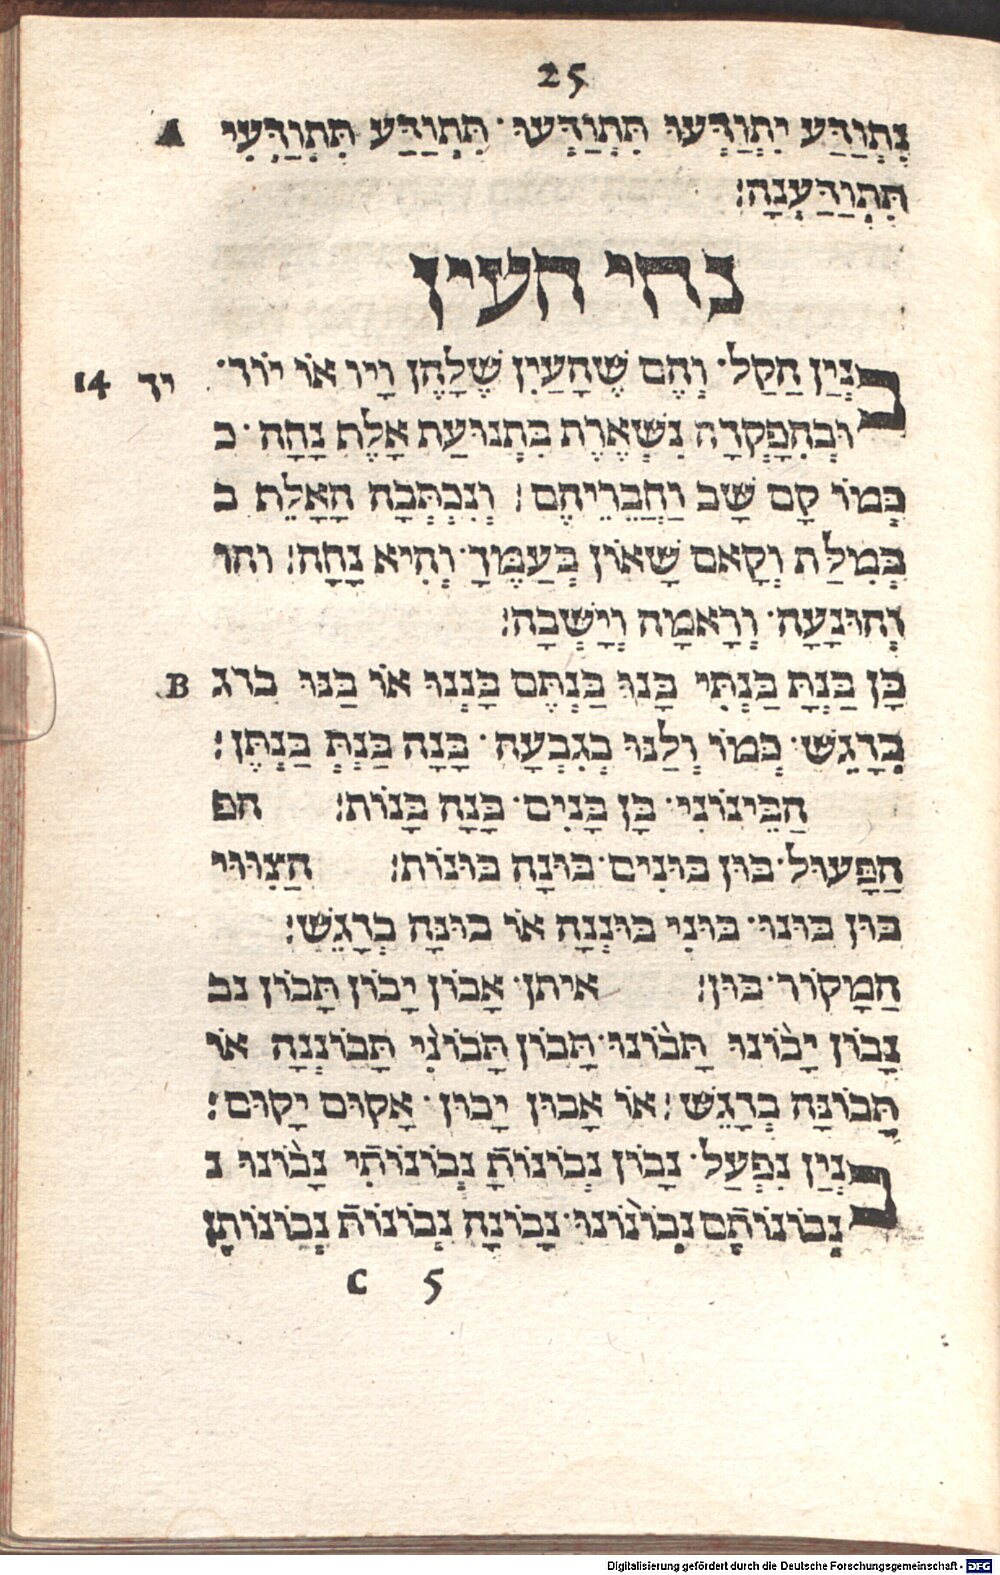 25
A נִתְוַדַּע יִתְוַדְּעוּ תִּתְוַדְּעוּ· תִּתְוַדַּע תִּתְוַדְּעִי
תִּתְוַדַּעְנָה׃
נחי העין
14 יד בִּנְיַן הַקַּל· וְהֶם שֶׁהָעַיִן שֶׁלָּהֶן וָיו אוֹ יוֹד·
וּבְהִפָּקְדָהּ נִשְׁאֶרֶת בִּתְנוּעַת אָלֶת נָחָה· כ
כְּמוֹ קָם שָׁב וַחֲבֵרֵיהֶם׃ וְנִכְתְּבָה הָאָלֶת ב
בְּמִלַּת וְקָאם שָׁאוֹן בְּעַמֶּךָ· וְהִיא נָחָה׃ והו
וְהוּנָעָה· וְרָאמָה וְיָשְׁבָה׃
B בָּן בַּנְתָּ בַּנְתִּי בָּנוּ בַּנְתֶּם בָּנְנוּ אוֹ בַּנּוּ בדג
בְּדָגֵשׁ· כְּמוֹ וְלַנּוּ בְגִבְעָה· בָּנָה בַּנְתְּ בַּנְתֶּן׃
הַבֵּינוֹנִי· בָּן בָּנִים· בָּנָה בָּנוֹת׃ הפ
הַפָּעוּל· בּוּן בּוּנִים· בּוּנָה בּוּנוֹת׃ הַצִוּוּי
בּוּן בּוּנוּ· בּוּנִי בּוּנְנָה אוֹ בוּנָּה בְדָגֵשׁ׃
הַמָּקוֹר· בּוּן׃ איתן· אָבוֹן יָבוֹן תָּבוֹן נב
נָבוֹן יָבוֹנוּ תָּבוֹנוּ· תָּבוֹן תָּבוֹנִי תָּבוֹנְנָה אוֹ
תָּבוֹנָּה בְדָגֵשׁ׃ אוֹ אָבוּן יָבוּן· אָקוּם יָקוּם׃
בִּנְיַן נִפְעַל· נָבוֹן נְבוּנוֹתָ נְבוּנוֹתִי נָבוֹנוּ נ
נְבוּנוֹתָם נְבוּנוֹנוּ· נָבוֹנָה נְבוּנוֹת נְבוּנוֹתֶן
C 5
Digitalisierung gefördert durch die Deutsche Forschungsgemeinschaft - DFG